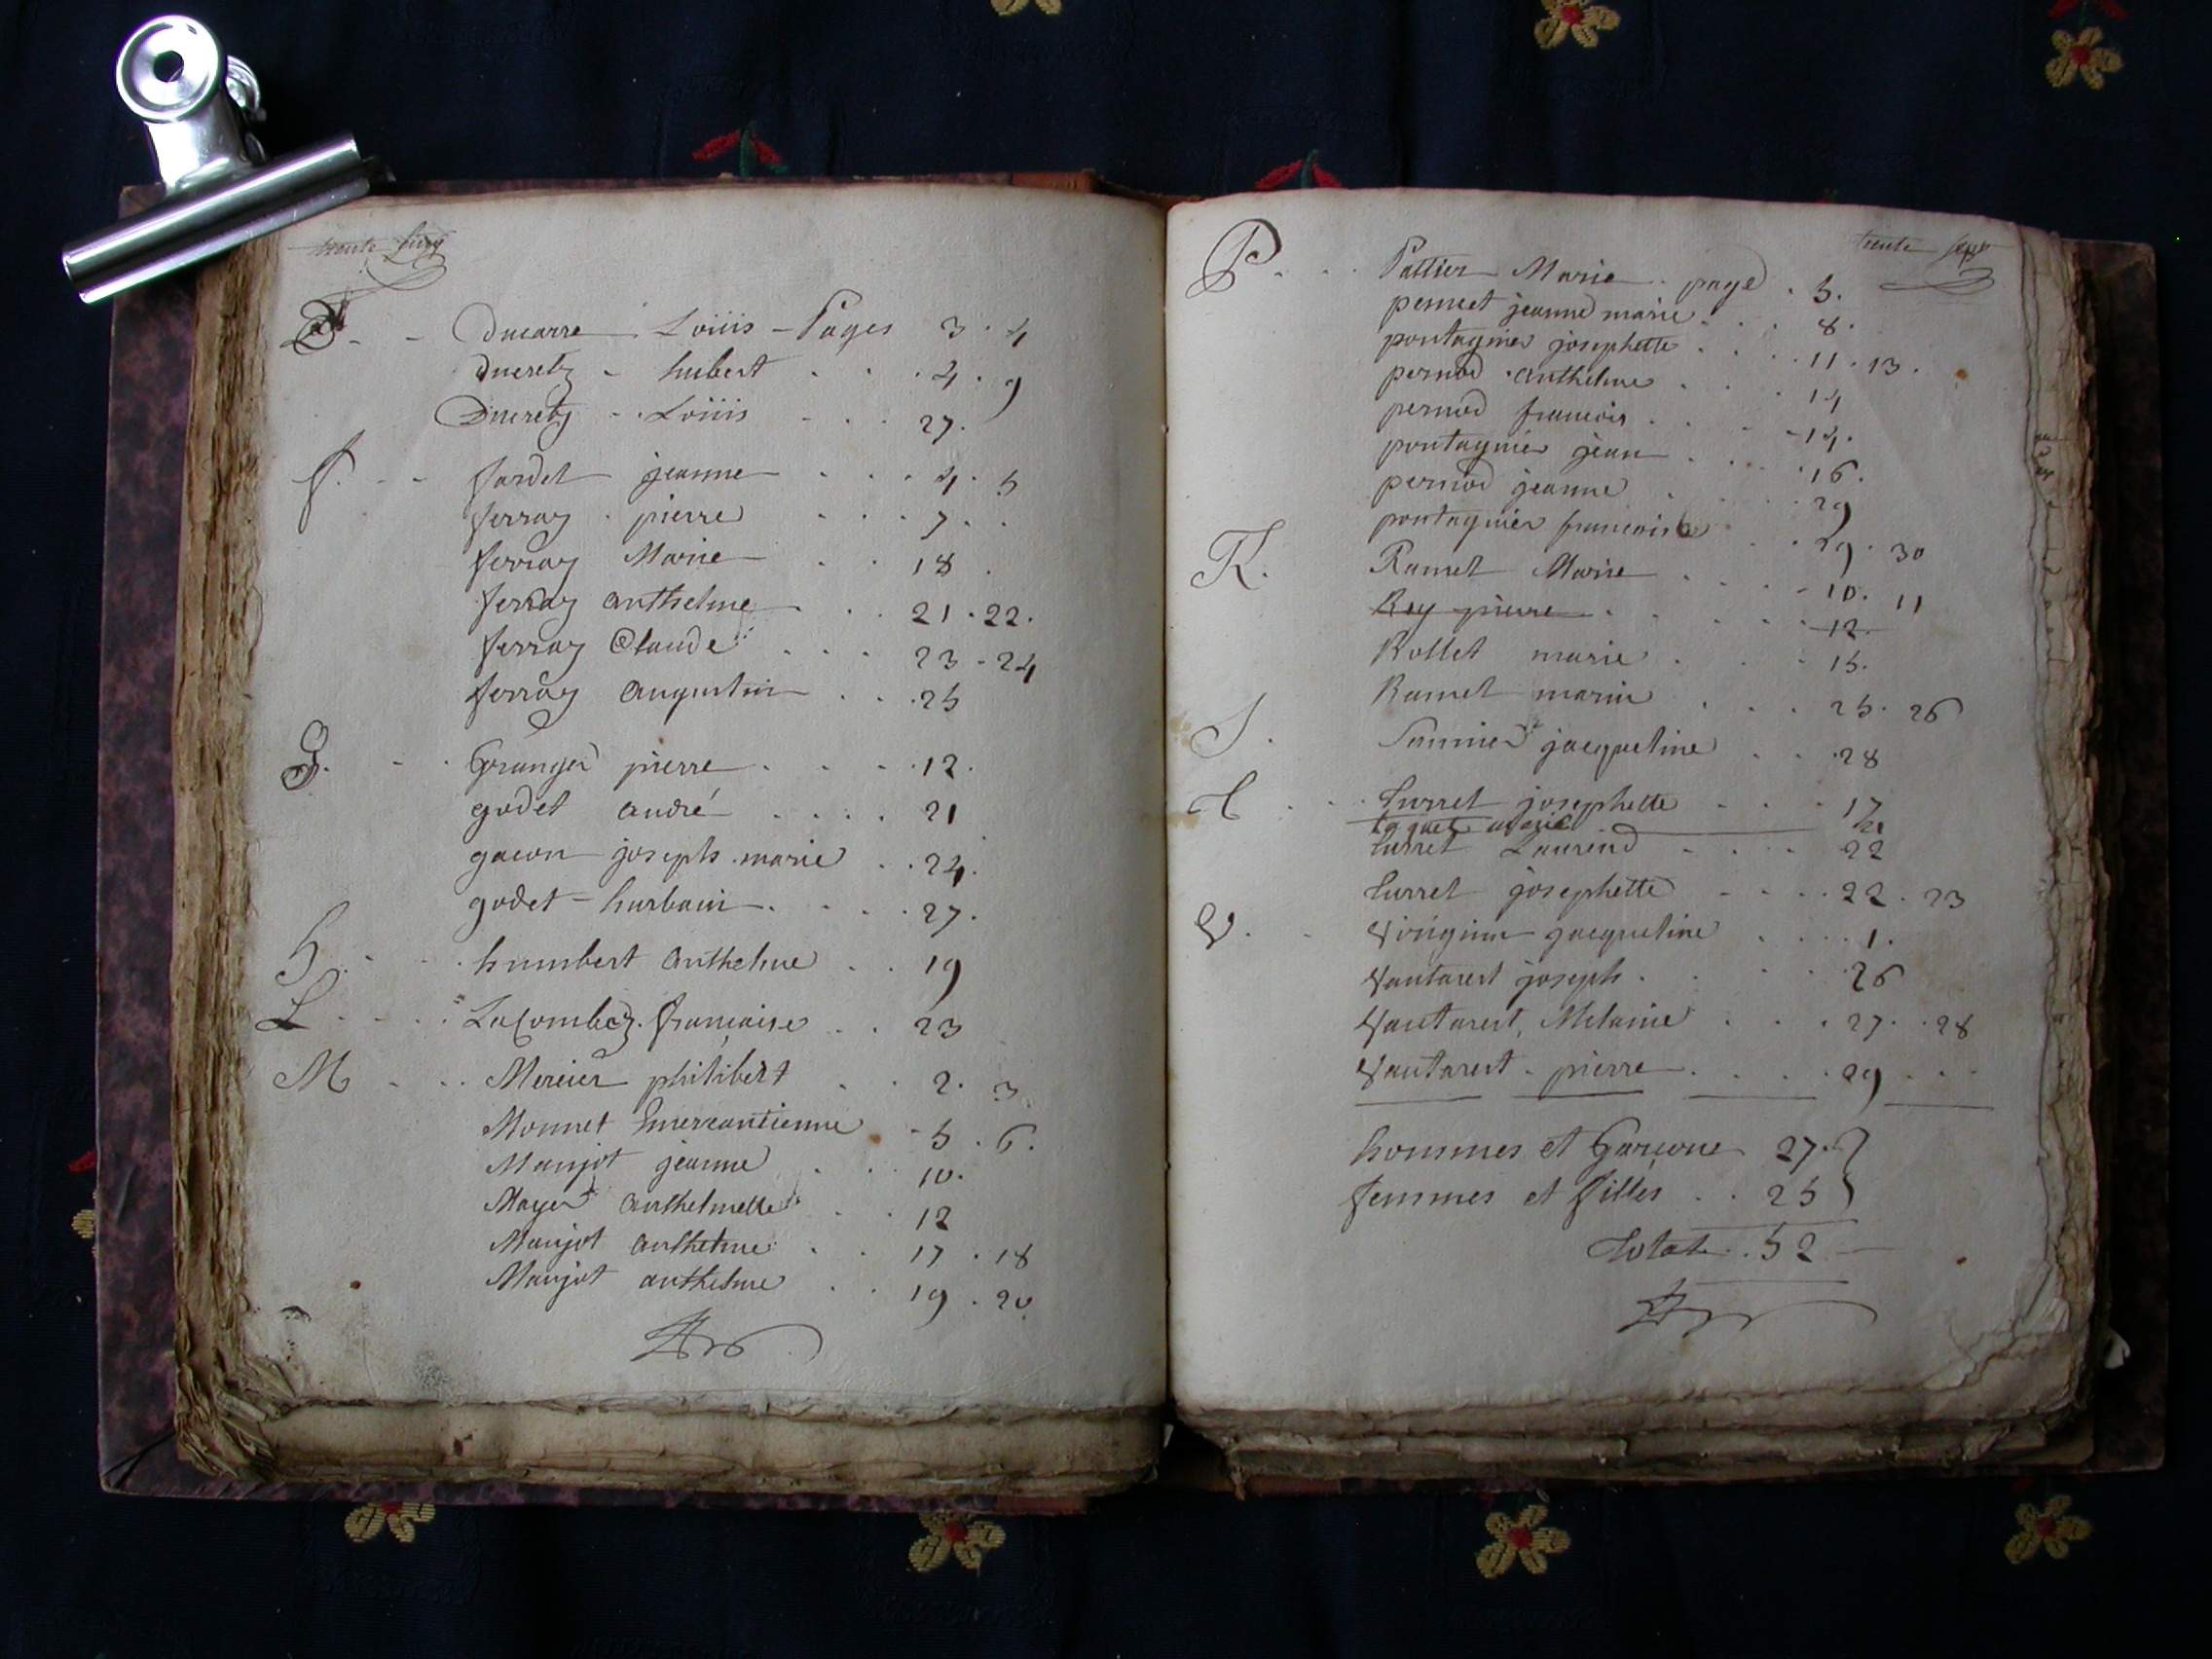 trente
D. - - Ducarre Loüis - Pages 3. 4
Ducretz - hubert . . . 4. 9
Ducretz - Loüis - . . 27.
f. - - fardet jeanne . . . 4. 5
ferraz . pierre . . . 7. .
ferraz Marie . . 18 .
ferraz anthelme . . 21 . 22.
ferraz Claude . . . 23 - 24
ferraz augustin . . . 25
G. - . . Granger pierre . . - . 12.
godet andré . . . . 21
gacon joseph . marie . . 24.
godet - hurbain . . . . 27.
h . - . . humbert anthelme . . 19
L . - . . LaCombe françoise . . 23
M - . . Mercier philibert . . 2. 3
Monnet Emerantienne - 5 . 6.
Manjot jeanne . . 10.
Mayer anthelmette . . 12
Manjot anthelme . . 17 . 18
Manjot anthelme . . 19 . 20.
trente sept
P. . . Pattier Marie . page . 5.
pernet jeanne marie . . . 8.
pontagnier josephette . . . . 11 . 13 .
pernod . anthelme . . . 14
pernod francois . . . - 14.
pontagnier jean . . . . 16.
pernod jeanne . . . . 29
pontagnier francoise . . . 29 . 30
R. Ramet Marie . . . - 10. 11
Rey pierre . . . . . 12.
Rollet marie . . . 15.
Ramet marie . . . 25. 26
S . Sunnier jacqueline . . . 28
T . . . turret josephette - . . 17
marie 21
turret Laurend - . . 22
turret josephette - . . . 22 . 23
V. - Voiginn jacqueline . . . . 1.
Vautarest joseph . . . . 26
Vautarest, Melanie . . . 27. . 28
Vautarest . pierre . . . . 29 . . .
hommes et Garçons 27.
femmes et filles . . 25
Total . 52